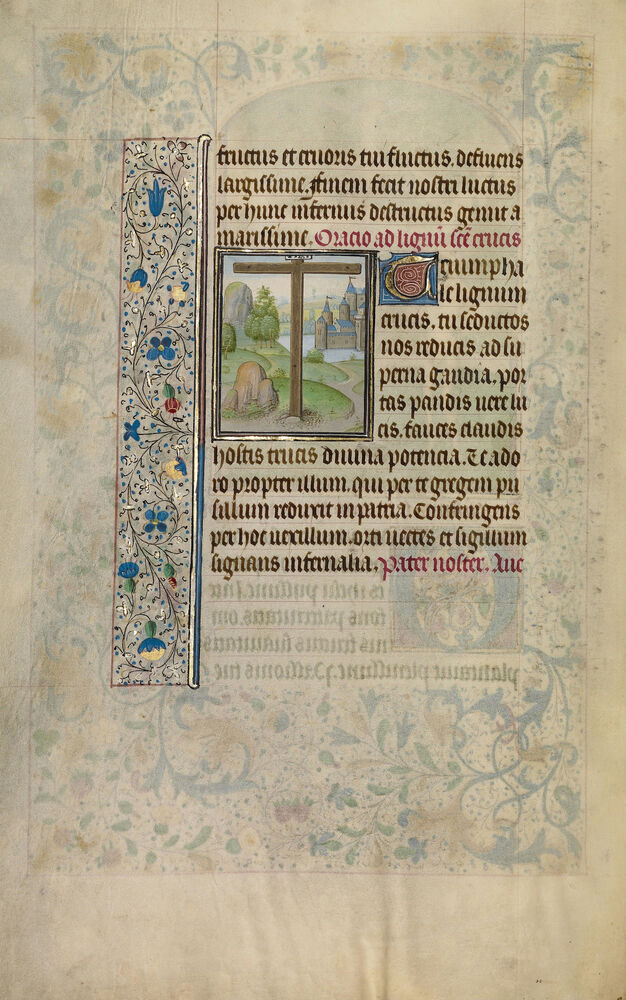 fructus et cruoris tui fluctus. defluens
largissime. ffinem fecit nostri luctus
per hunc infernus destructus gemit a
marissime. Oracio ad lignū scē crucis
Triumpha
le lignum
crucis. tu seductos
nos reducis ad su
perna gaudia. por
tas pandis uere lu
cis. fauces claudis
hostis trucis diuina potencia. Te ado
ro propter illum. qui per te gregem pu
sillum reduxit in patria. Confringens
per hoc uexillum. orti uectes et sigillum
signans infernalia. Pater noster. Aue